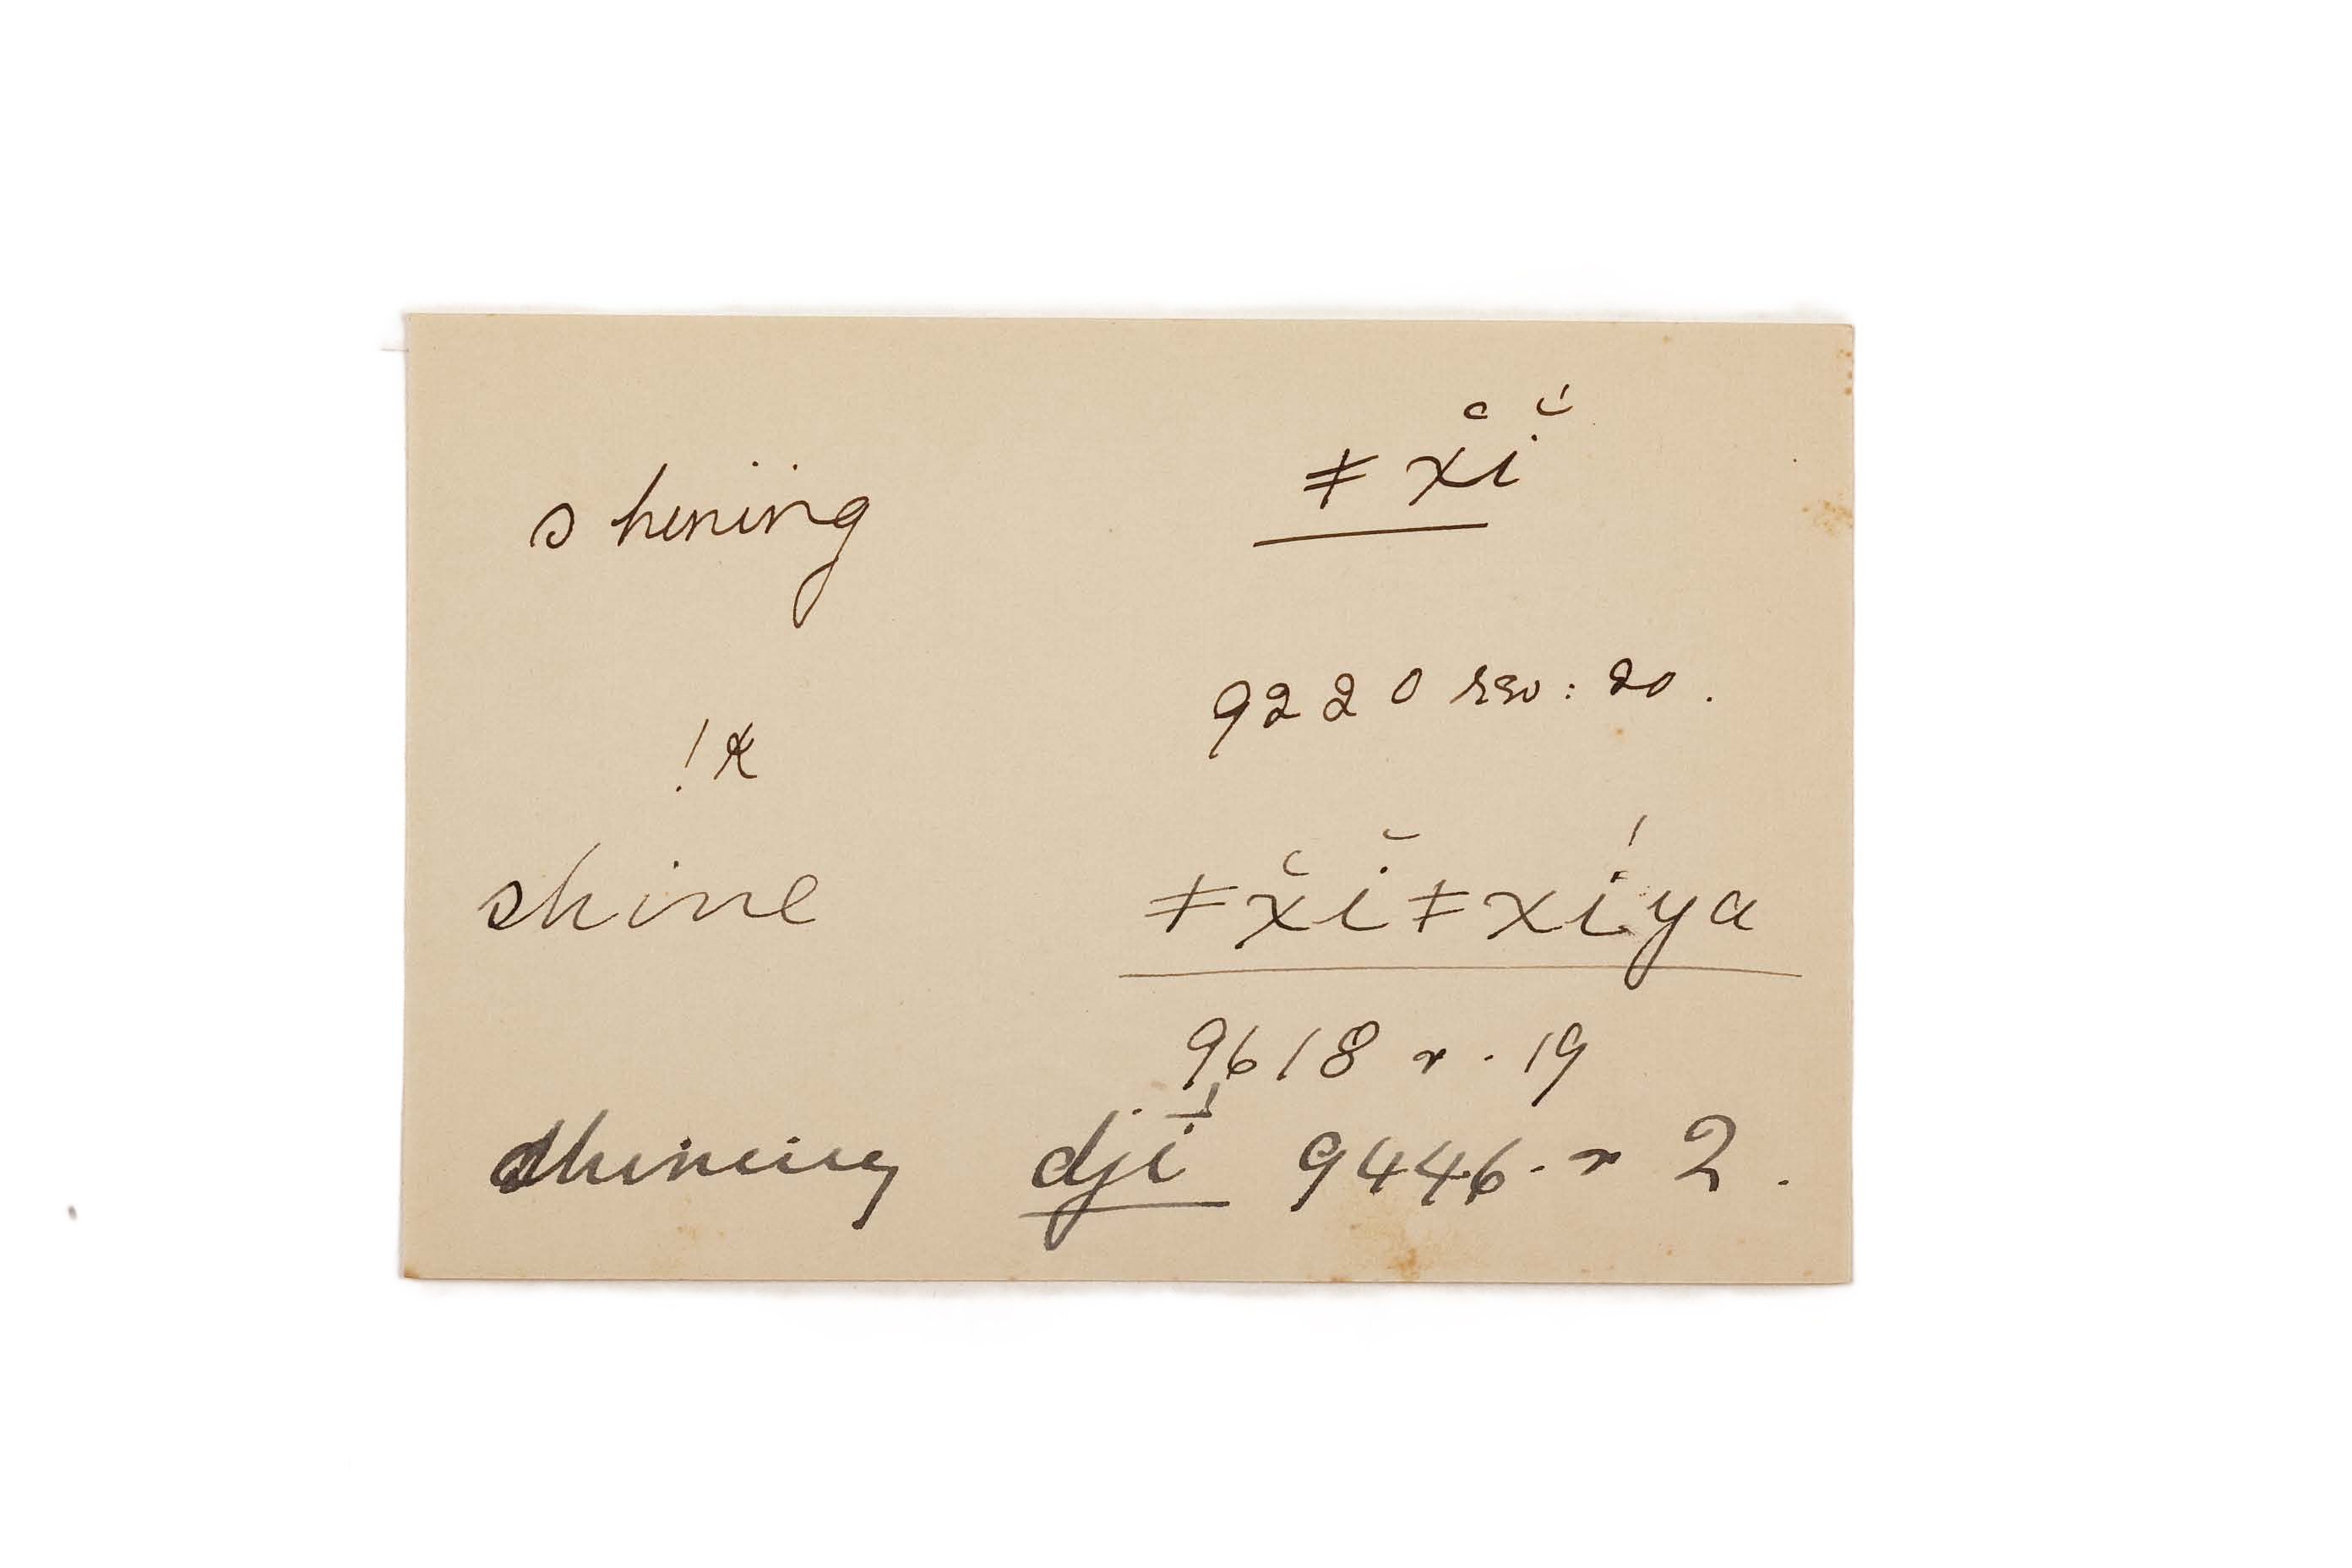 shining ǂx̆ĭ́
9220 rev: 20.
!k
shine ǂx̆ĭǂxíya
9618 r. 19
shining djī́ 9446. r 2.